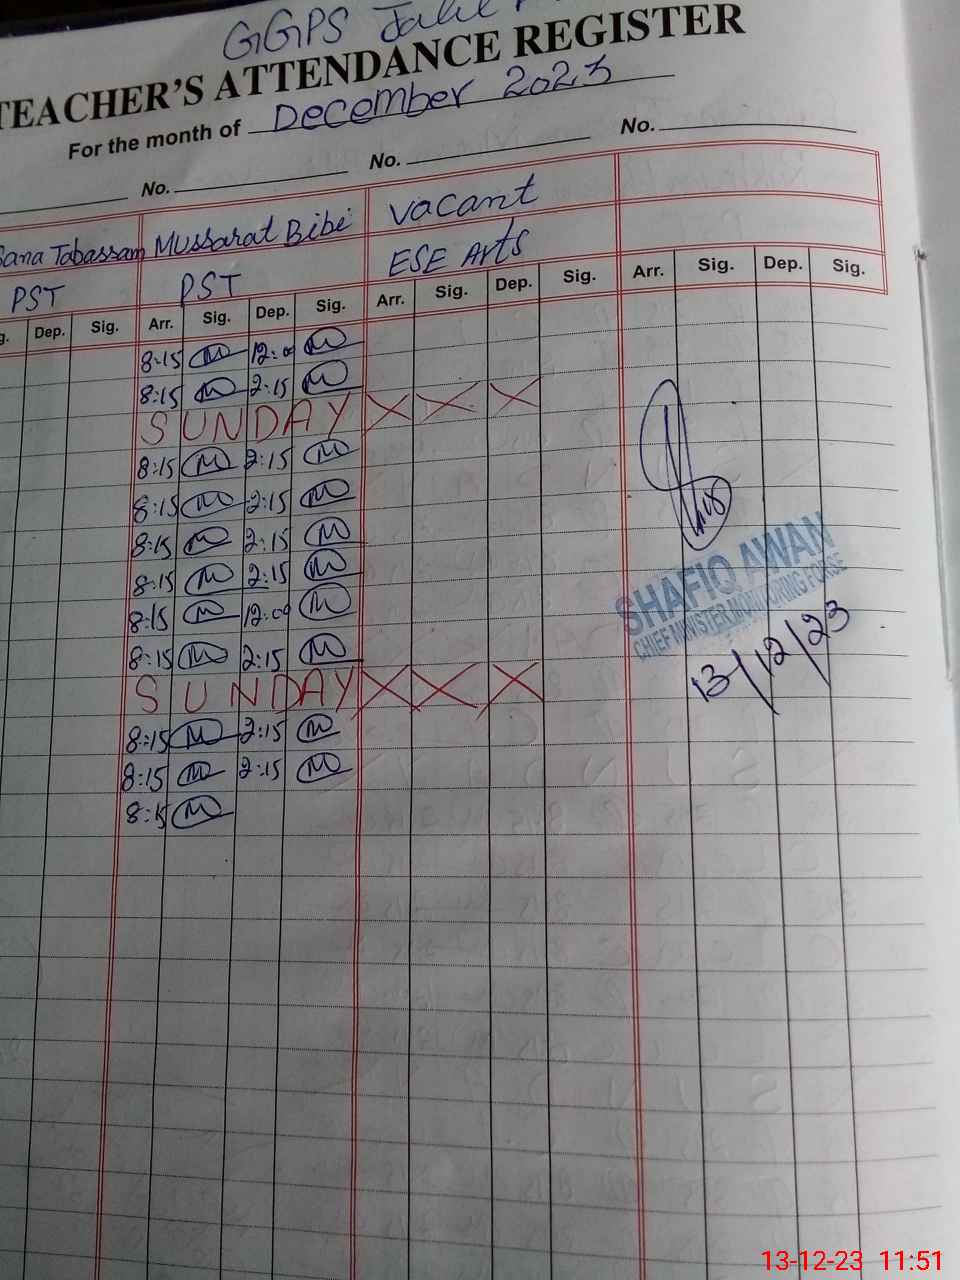 GGPS
TEACHER'S ATTENDANCE REGISTER
For the month of December 2023
No. No. No.
Sana Tabassam Mussarat Bibi vacant
PST PST ESE Arts
Dep. Sig. Arr. Sig. Dep. Sig. Arr. Sig. Dep. Sig. Arr. Sig. Dep. Sig.
8:15 M 12:00 M
8:15 M 2:15 M
SUNDAY X X X
8:15 M 2:15 M
8:15 M 2:15 M
8:15 M 2:15 M
8:15 M 2:15 M
8:15 M 12:00 M
8:15 M 2:15 M
SUNDAY X X X
8:15 M 2:15 M
8:15 M 2:15 M
8:15 M
SHAFIQ AWAN
CHIEF MINISTER MONITORING FORCE
13/12/23
13-12-23 11:51